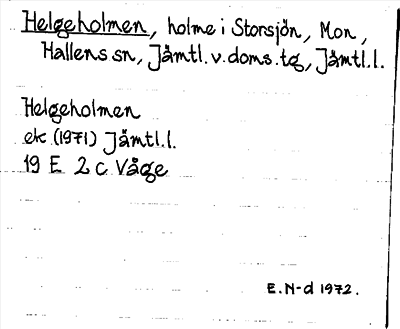 Helgeholmen, holme i Storsjön, Mon,
Hallens sn, Jämtl.v.doms.tg, Jämtl.l.
Helgeholmen
ek (1971) Jämtl.l.
19 E 2 c Våge
E.N-d 1972.